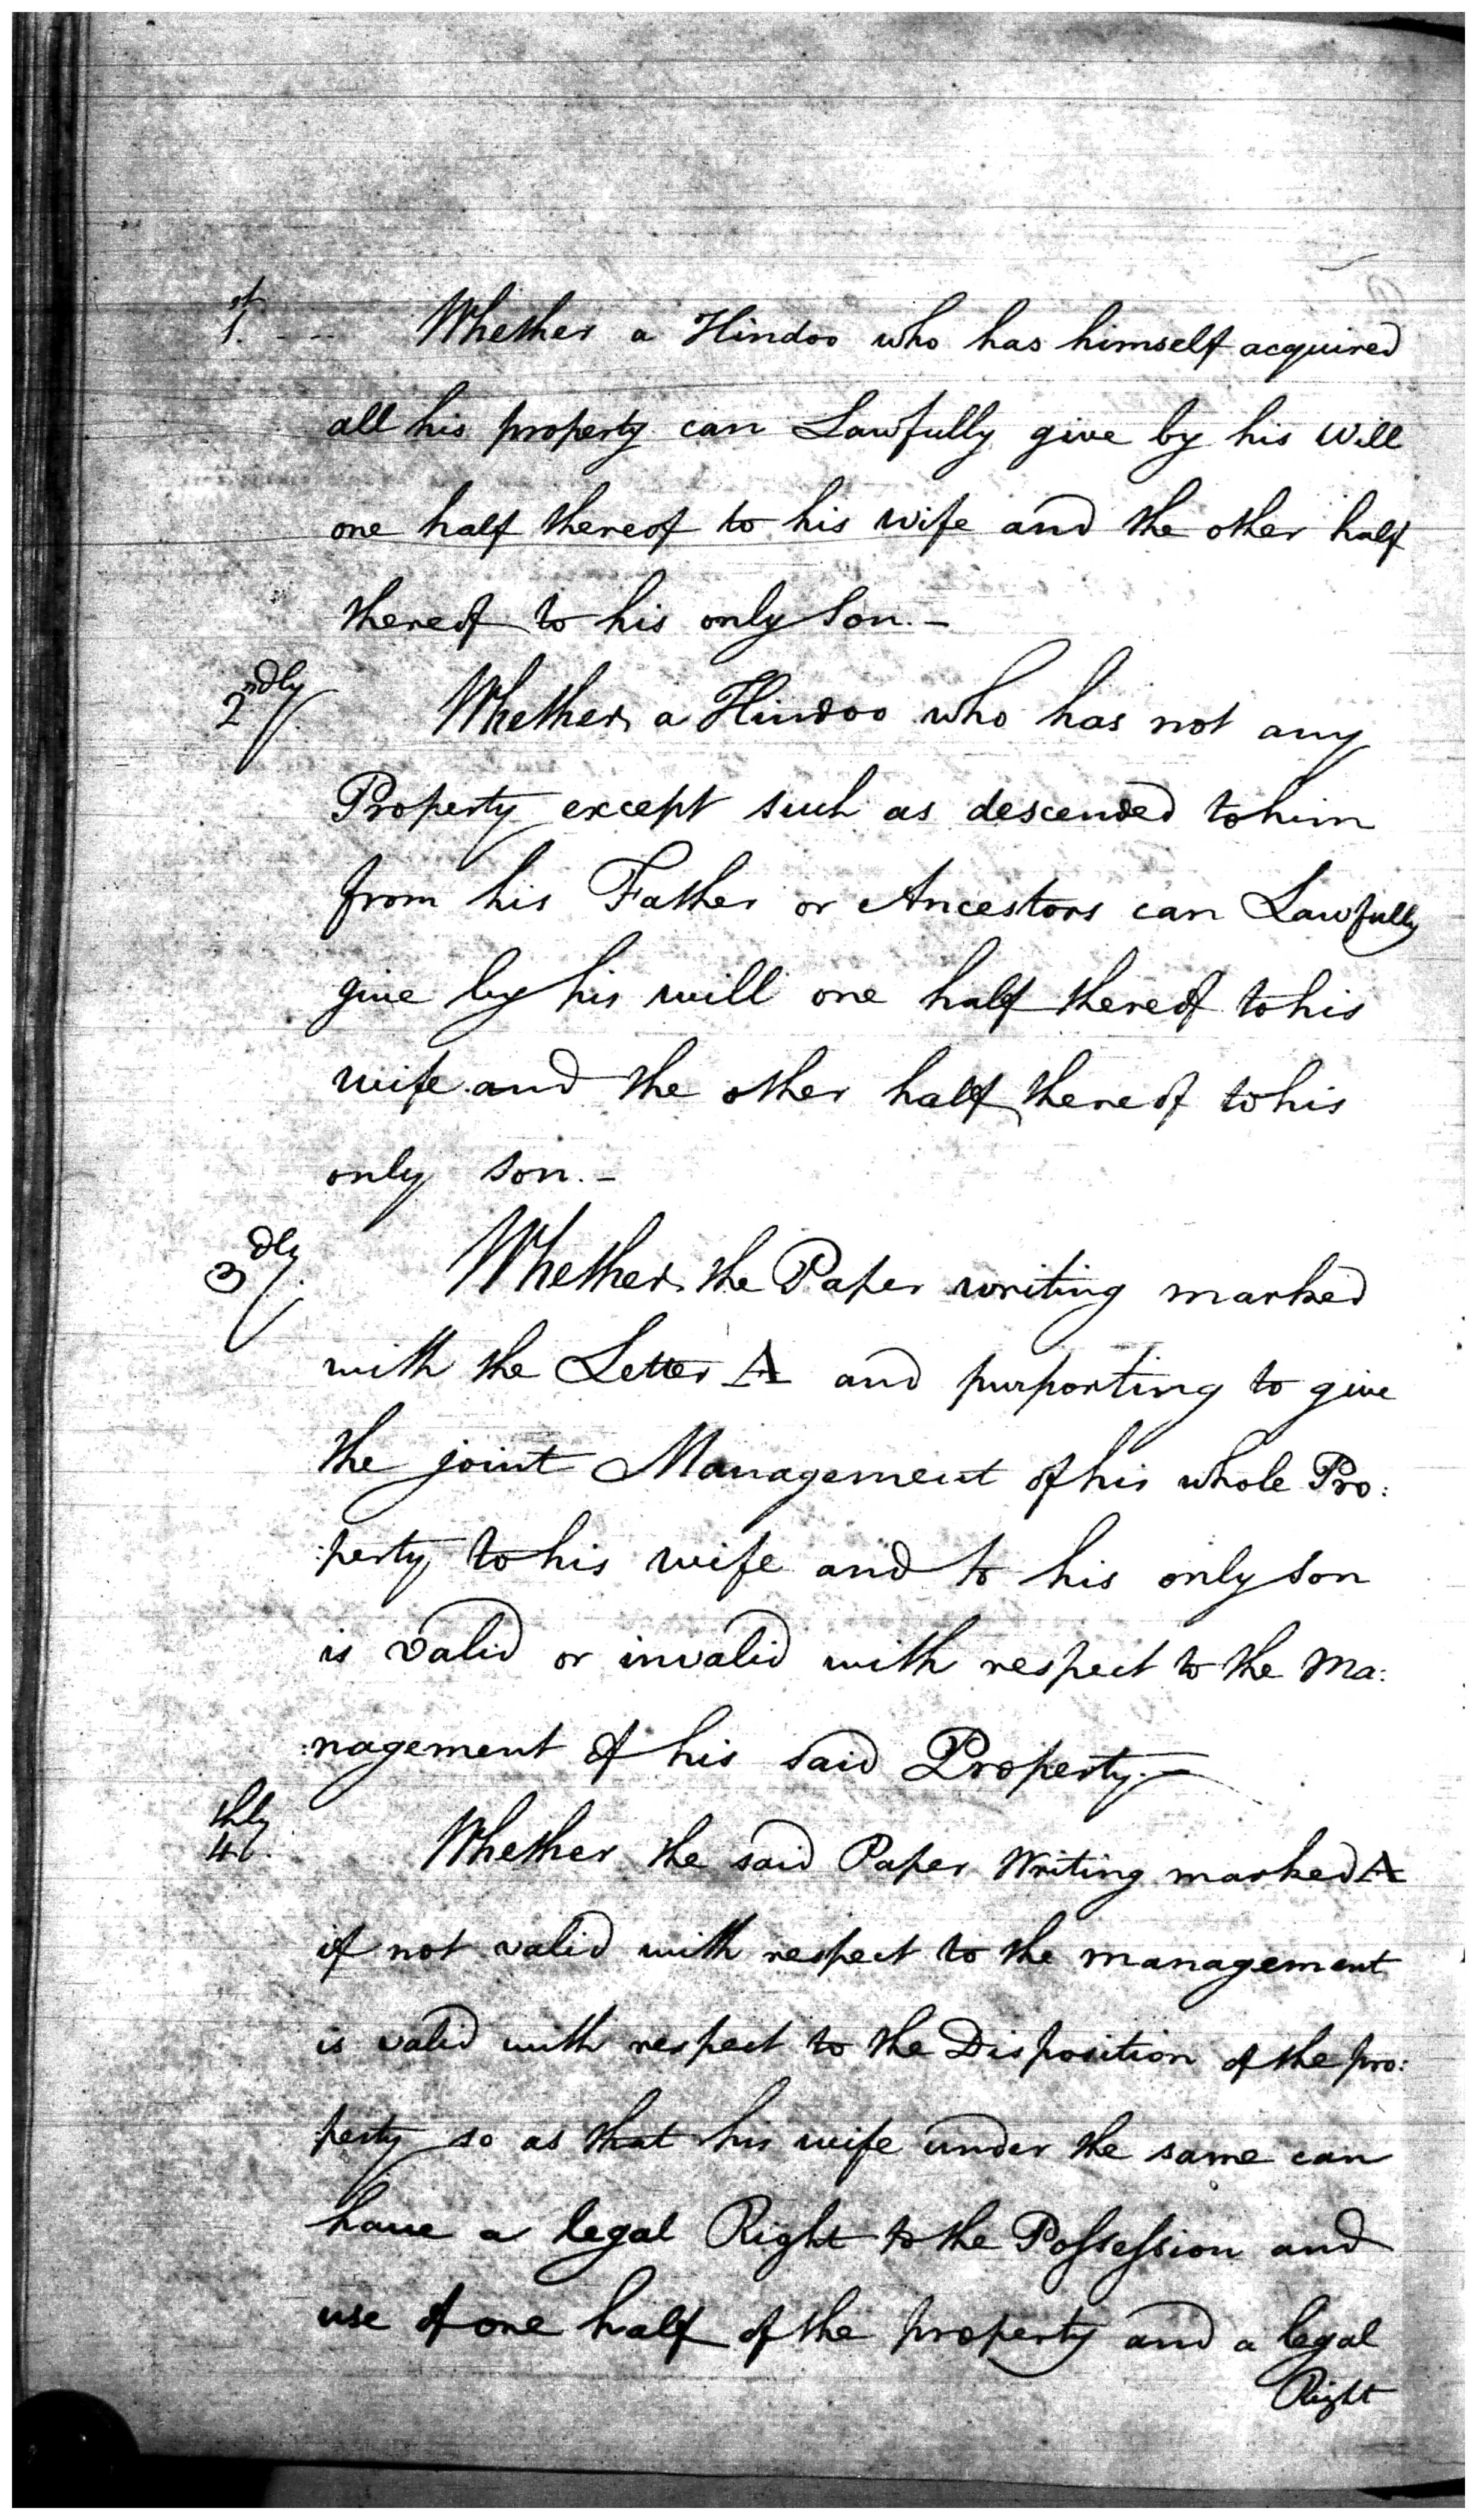 1.st -- Whether a Hindoo who has himself acquired
all his property can Lawfully give by his Will
one half thereof to his wife and the other half
thereof to his only Son.-
2ndly. Whether a Hindoo who has not any
Property except such as descended to him
from his Father or Ancestors can Lawfully
give by his will one half thereof to his
wife and the other half thereof to his
only son.-
3dly. Whether the Paper writing marked
with the Letter A and purporting to give
the joint Management of his whole Pro:
:perty to his wife and to his only son
is valid or invalid with respect to the Ma:
:nagement of his said Property.-
4thly. Whether the said Paper Writing marked A
if not valid with respect to the management
is valid with respect to the Disposition of the pro:
:perty so as that his wife under the same can
have a legal Right to the Possession and
use of one half of the property and a legal
Right